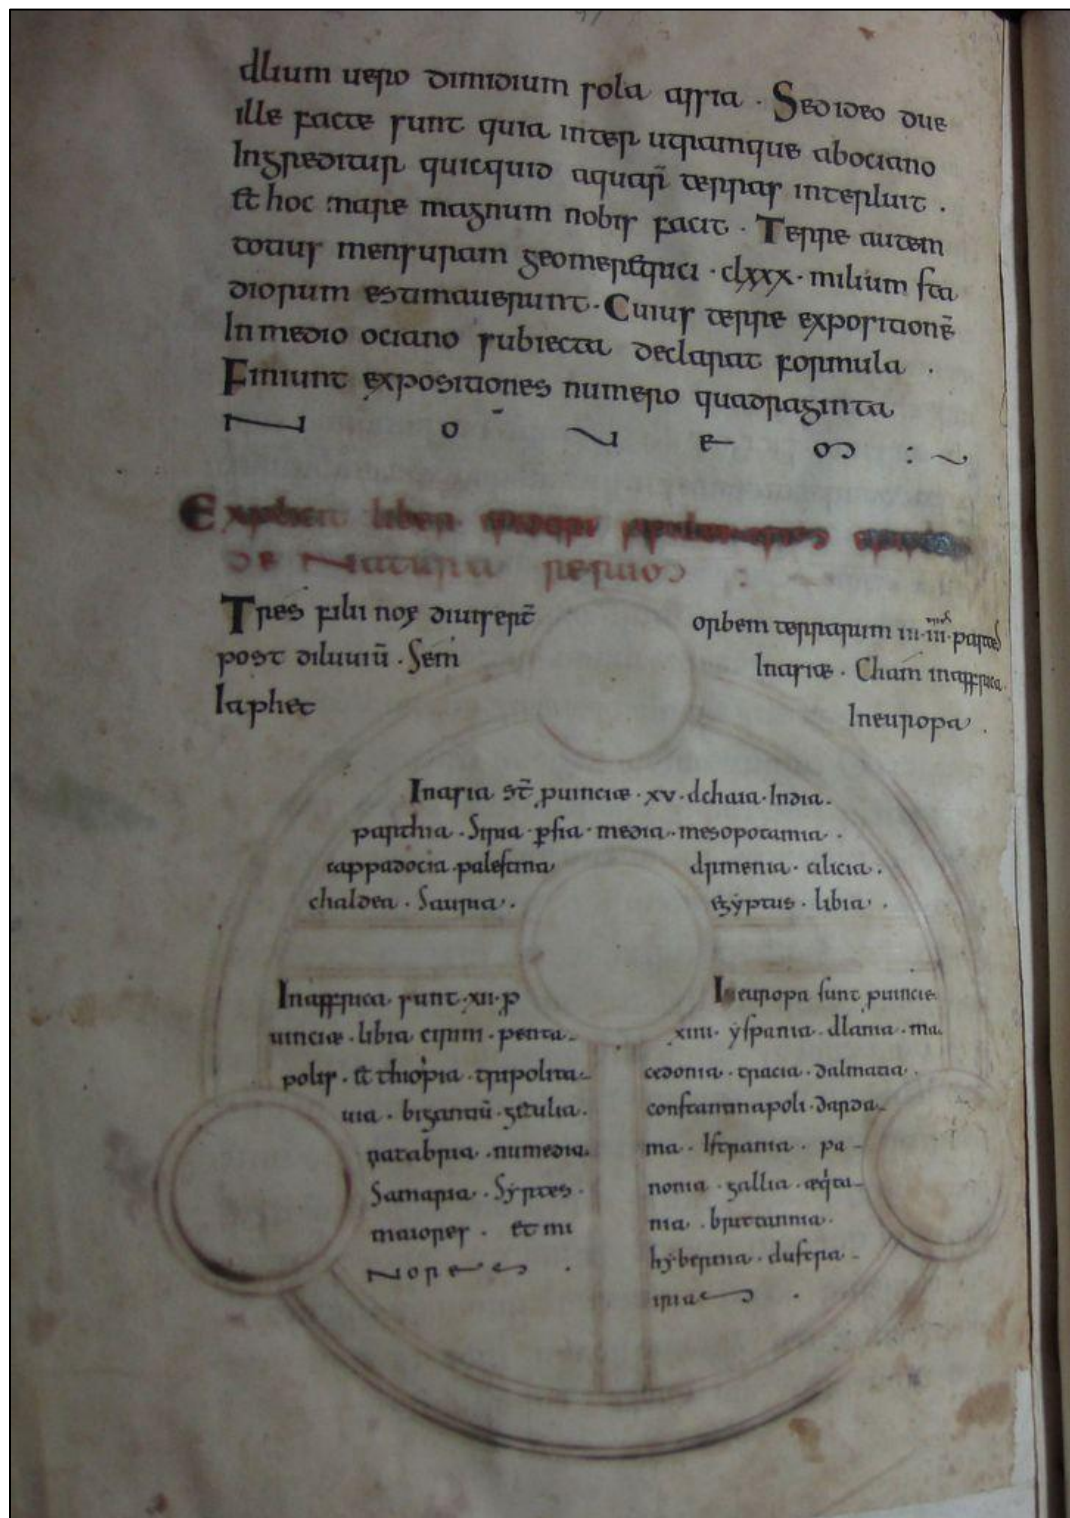 dlium uero dimidium sola assia . Sed ideo due
ille facte sunt quia inter utramque abociano
Ingreditur quicquid aquar̄ terras interluit .
Et hoc mare magnum nobis facit . Terre autem
totius mensuram geometrici . clxxx . milium sta
diorum estimauerunt . Cuius terre expositionē
In medio ociano subiecta declarat formula .
Finiunt expositiones numero quadraginta
N o U e m : ~
Explicit liber
de Natura rerum :
Tres filii noe diuiser̄t orbem terrarum in . iii . partes
post diluuiū . Sem Inasiæ . Cham inaffrica .
Iaphet Ineuropa .
Inasia st̄ puinciæ . xv . dchaia . India .
parthia . Siria . ꝑsia . media . mesopotamia .
cappadocia . palestina drmenia . cilicia .
chaldea . Sauria . egẏptus . libia .
Inaffrica . sunt . xii . ꝓ
uinciæ . libia cirini . penta
polis . Et thiopia tripolita
uia . bizantiū . getulia .
natabria . numedia .
Samaria . Sẏrtes .
maiores . et mi
Nores .
Ineuropa sunt puincie
xiiii . ẏspania . dlania . ma
cedonia . tracia . dalmatia .
constantinapoli . darda
ma . Istrania . pa
nonia . gallia . æq̇ta
nia . brittannia .
hẏbernia . dufcria
iria .